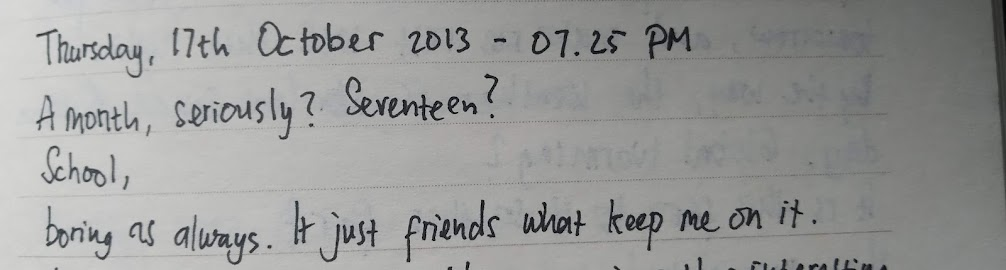 Thursday, 17th October 2013 - 07.25 PM
A month, seriously? Seventeen?
School,
boring as always. It just friends what keep me on it.